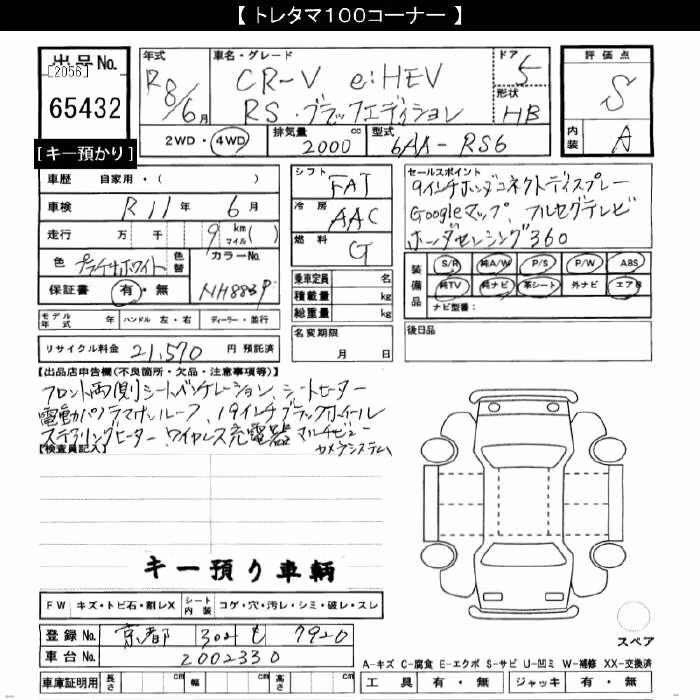 【 トレタマ100コーナー 】
出品No.
[2056]
65432
[キー預かり]
年式
R8/6月
車名・グレード
CR-V e:HEV
RS・ブラックエディション
ドア
5
形状
HB
2WD・4WD
排気量 2000 cc
型式 6AA-RS6
評価点
S
内装 A
車歴 自家用・( )
車検 R11年 6月
走行 万 千 9 km マイル ( )
色 プラチナホワイト 色替 カラーNo.
保証書 有・無 NH883P
シフト FAT
冷房 AAC
燃料 G
乗車定員 名
積載量 kg
総重量 kg
セールスポイント
9インチホンダコネクトディスプレー
Googleマップ、フルセグテレビ
ホンダセンシング360
装備品 S/R 純A/W P/S P/W ABS
純TV 純ナビ 革シート 外ナビ エアB
ナビ型番:
モデル年式 年 ハンドル 左・右 ディーラー・並行
名変期限
月 日
後日品
リサイクル料金 21,570 円 預託済
【出品店申告欄(不良箇所・欠品・注意事項等)】
フロント両側シートベンチレーション、シートヒーター
電動パノラマサンルーフ、19インチブラックホイール
ステアリングヒーター、ワイヤレス充電器 マルチビュー
カメラシステム
【検査員記入】
キー預り車輌
FW キズ・トビ石・割レX シート内装 コゲ・穴・汚レ・シミ・破レ・スレ
登録No. 京都 302 も 7920
車台No. 2002330
車庫証明用 長さ cm 幅 cm 高さ cm
スペア
A-キズ C-腐食 E-エクボ S-サビ U-凹ミ W-補修 XX-交換済
工具 有・無 ジャッキ 有・無